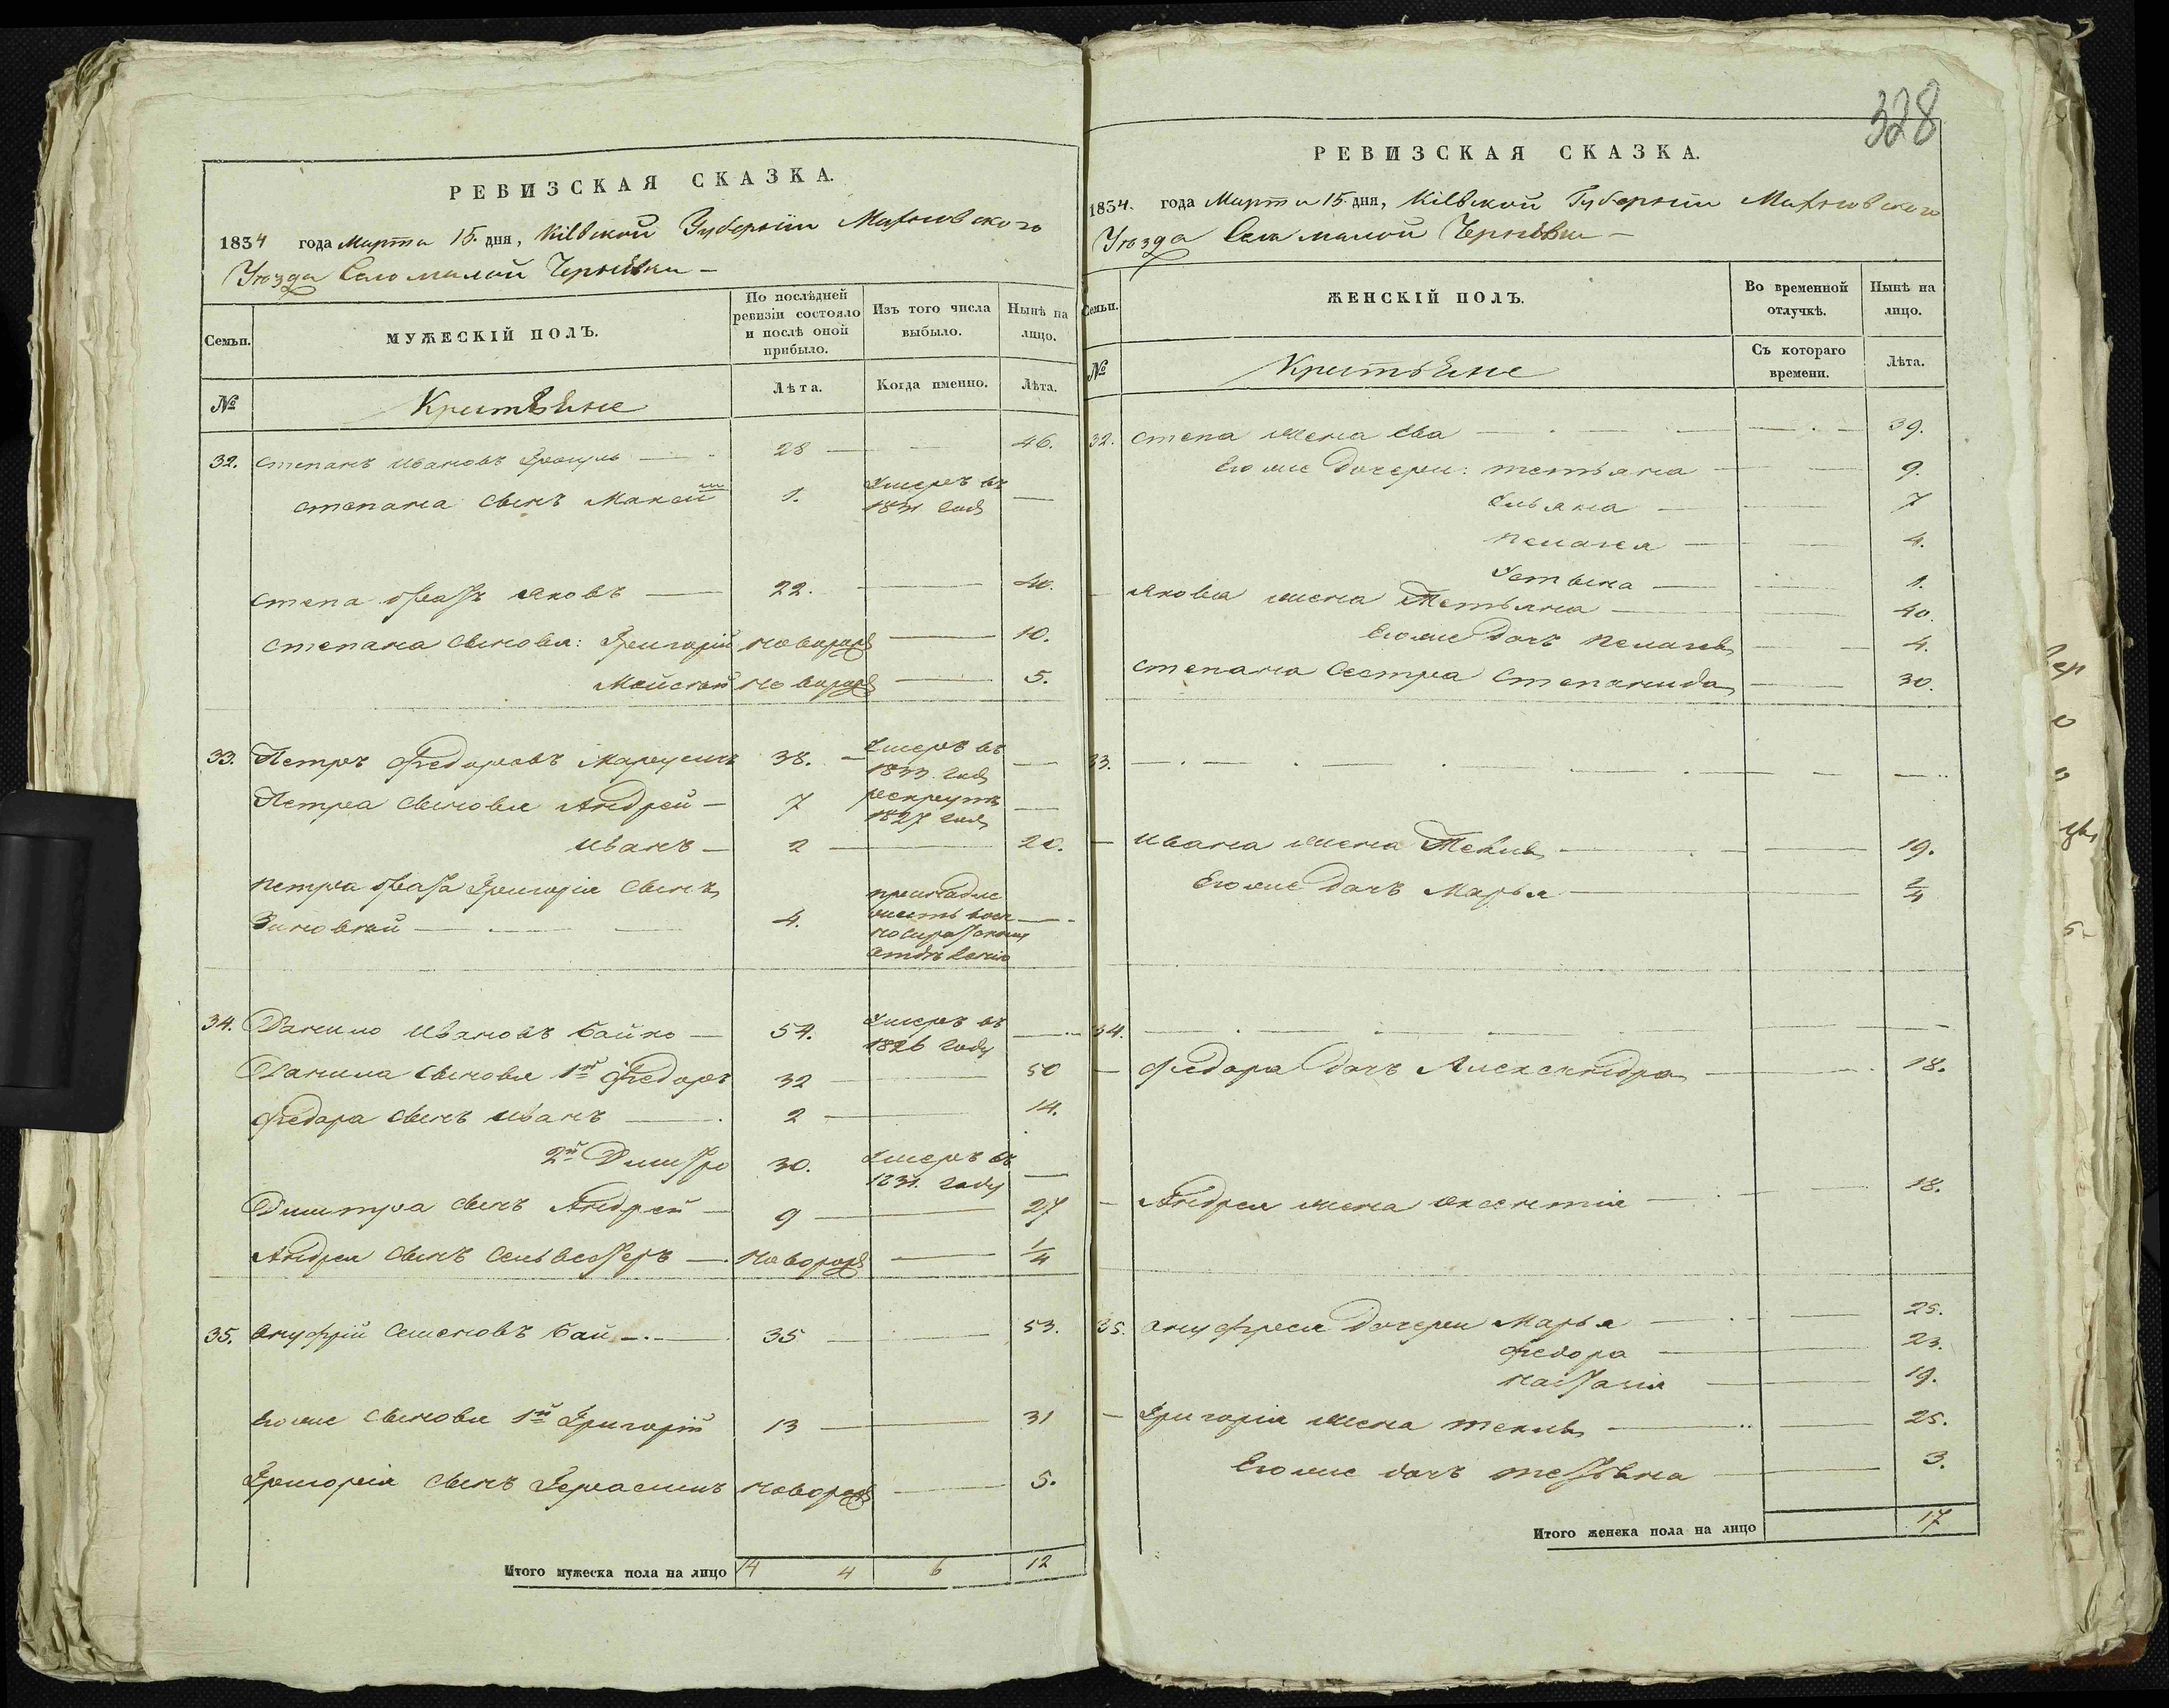 РЕВИЗСКАЯ СКАЗКА.
1834 года Марта 15. дня, Кіевской Губерніи Махновского
Уѣзда Село малой Чернявки –
Семьи.
МУЖЕСКІЙ ПОЛЪ.
По послѣдней ревизіи состояло и послѣ оной прибыло.
Изъ того числа выбыло.
Нынѣ на лицо.
№
Крестьяне
Лѣта.
Когда именно.
Лѣта.
32. степанъ Ивановъ 28 46.
степана сынъ Максим 1. Умеръ въ
1831 году
степа братъ яковъ 22. 40.
степана сыновья: Григорій новорож 10.
Мойсей новорож 5.
33. Петръ Федоровъ 38. Умеръ въ
1833 году
Петра сыновья Андрей 7 рекрутъ
1827 году
Иванъ 2 20.
петра брата Григорія сынъ
Зиновий 4.
34. Данило Ивановъ Байко 54. Умеръ въ
1826 году
Данила сыновья 1й Федоръ 32 50
Федора сынъ Иванъ 2 14.
2й Дмитро 30. Умеръ въ
1831. году
Димитра сынъ Андрей 9 27
Андрея сынъ Сильвестеръ новорож 1/4
35. Онуфрій Семеновъ Бай 35 53.
Его же сыновья 1й Григорій 13 31
Григорія сынъ Герасимъ новорож 5.
Итого мужеска пола на лицо 14 4 6 12
328
РЕВИЗСКАЯ СКАЗКА.
1834. года Марта 15. дня, Кіевской Губерніи Махновского
Уѣзда Села малой Чернявки –
Семьи.
ЖЕНСКІЙ ПОЛЪ.
Во временной отлучкѣ.
Нынѣ на лицо.
№
Крестьяне
Съ котораго времени.
Лѣта.
32. степа жена Ева 39.
Его же дочери: тетьяна 9.
Ульяна 7
пелагея 4.
Устына 1.
Якова жена Тетьяна 40.
Его же дочь пелагея 4.
степана сестра степанида 30.
33.
Ивана жена Текля 19.
Его же дочь Марья 2/4
34.
Федора дочь Александра 18.
Андрея жена 18.
35. онуфрея дочери Марья 25.
Федора 23.
настасия 19.
Григорія жена текля 25.
Его же дочь тетьяна 3.
Итого женска пола на лицо 17